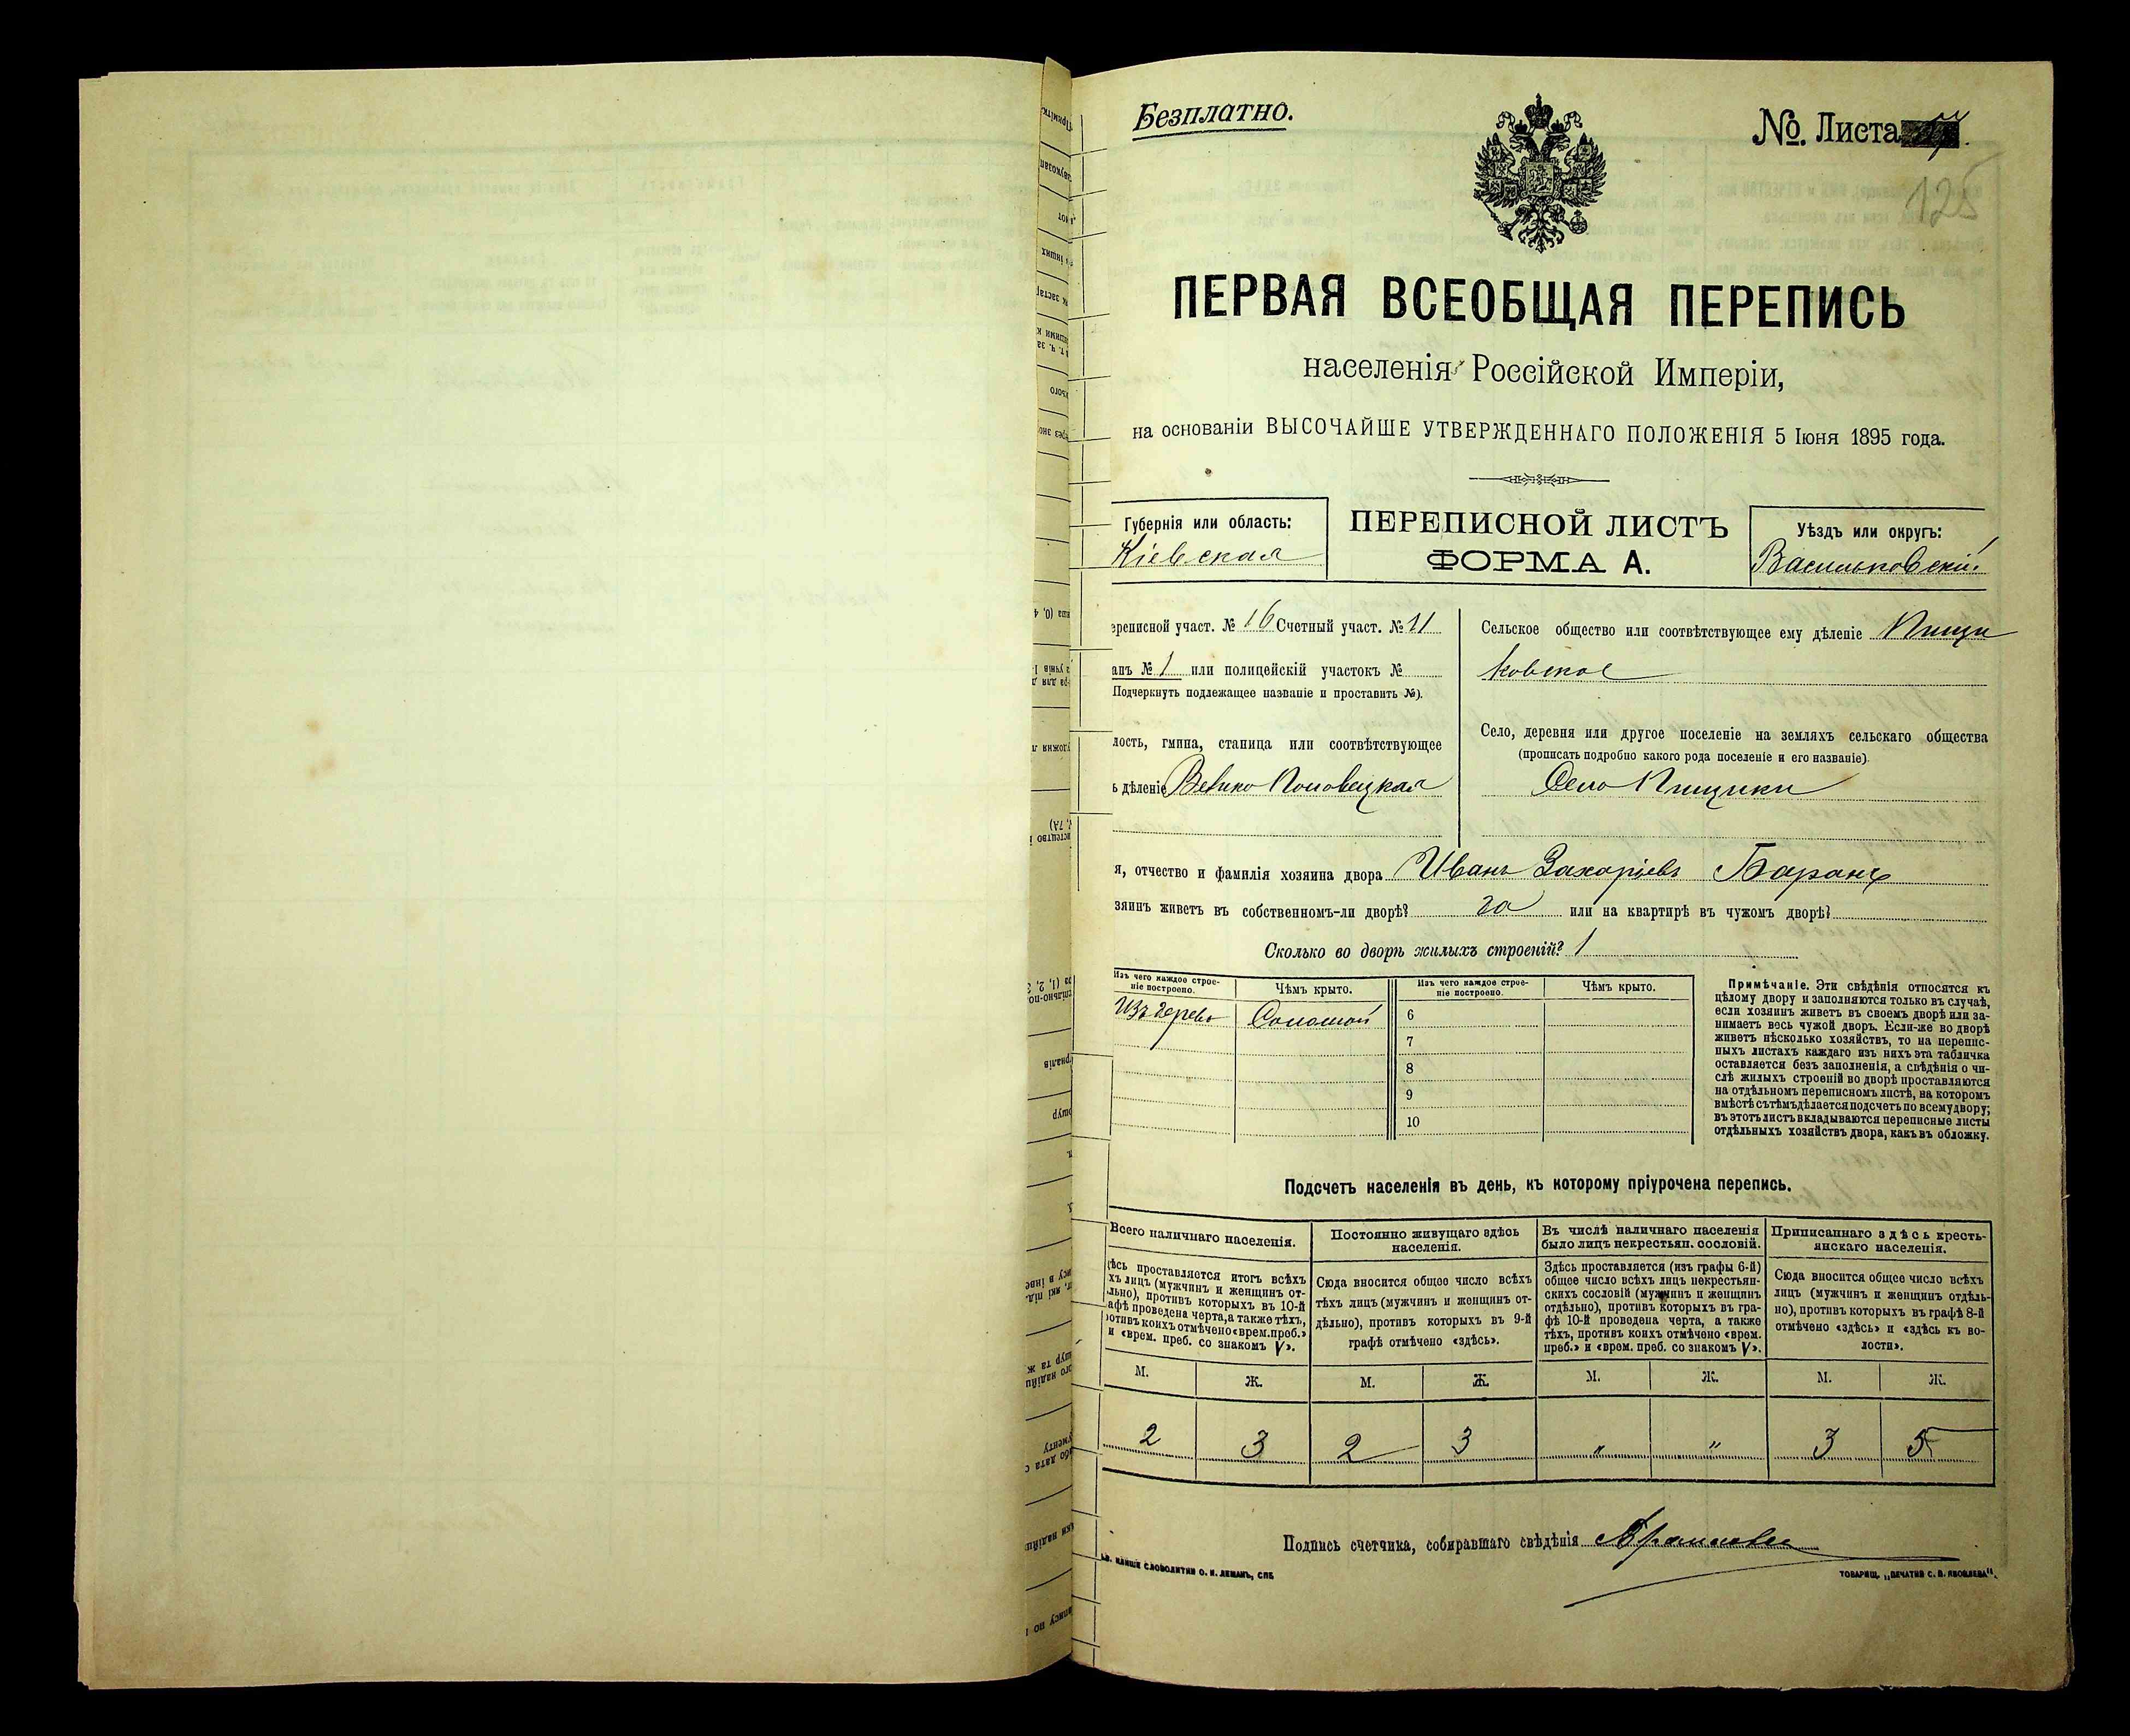 Безплатно.
No. Листа
125
ПЕРВАЯ ВСЕОБЩАЯ ПЕРЕПИСЬ
населенія Россійской Имперіи,
на основаніи ВЫСОЧАЙШЕ УТВЕРЖДЕННАГО ПОЛОЖЕНІЯ 5 Іюня 1895 года.
Губернія или область:
Кіевская
ПЕРЕПИСНОЙ ЛИСТЪ
ФОРМА А.
Уѣздъ или округъ:
Васильковскій
ереписной участ. № 16 Счетный участ. № 11
анъ № 1 или полицейскій участокъ №
Подчеркнуть подлежащее названіе и проставить №).
лость, гмина, станица или соотвѣтствующее
ь дѣленіе Велико Половецкая
Сельское общество или соотвѣтствующее ему дѣленіе Пищи
ковское
Село, деревня или другое поселеніе на земляхъ сельскаго общества
(прописать подробно какого рода поселеніе и его названіе).
Село Пищики
я, отчество и фамилія хозяина двора Иванъ Захаріевъ Баранъ
зяинъ живетъ въ собственномъ-ли дворѣ? да или на квартирѣ въ чужомъ дворѣ?
Сколько во дворѣ жилыхъ строеній? 1
Изъ чего каждое строе-
ніе построено.
Чѣмъ крыто.
Изъ чего каждое строе-
ніе построено.
Чѣмъ крыто.
Изъ дерева Соломой
6
7
8
9
10
Примѣчаніе. Эти свѣдѣнія относятся къ
цѣлому двору и заполняются только въ случаѣ,
если хозяинъ живетъ въ своемъ дворѣ или за-
нимаетъ весь чужой дворъ. Если-же во дворѣ
живетъ нѣсколько хозяйствъ, то на перепис-
ныхъ листахъ каждаго изъ нихъ эта табличка
оставляется безъ заполненія, а свѣдѣнія о чи-
слѣ жилыхъ строеній во дворѣ проставляются
на отдѣльномъ переписномъ листѣ, на которомъ
вмѣстѣ съ тѣмъ дѣлается подсчетъ по всему двору;
въ этотъ листъ вкладываются переписные листы
отдѣльныхъ хозяйствъ двора, какъ въ обложку.
Подсчетъ населенія въ день, къ которому пріурочена перепись.
Всего наличнаго населенія.
дѣсь проставляется итогъ всѣхъ
хъ лицъ (мужчинъ и женщинъ от-
льно), противъ которыхъ въ 10-й
афѣ проведена черта, а также тѣхъ,
ротивъ коихъ отмѣчено «врем. преб.»
и «врем. преб. со знакомъ V».
Постоянно живущаго здѣсь
населенія.
Сюда вносится общее число всѣхъ
тѣхъ лицъ (мужчинъ и женщинъ от-
дѣльно), противъ которыхъ въ 9-й
графѣ отмѣчено «здѣсь».
Въ числѣ наличнаго населенія
было лицъ некрестьян. сословій.
Здѣсь проставляется (изъ графы 6-й)
общее число всѣхъ лицъ некрестьян-
скихъ сословій (мужчинъ и женщинъ
отдѣльно), противъ которыхъ въ гра-
фѣ 10-й проведена черта, а также
тѣхъ, противъ коихъ отмѣчено «врем.
преб.» и «врем. преб. со знакомъ V».
Приписаннаго здѣсь кресть-
янскаго населенія.
Сюда вносится общее число всѣхъ
лицъ (мужчинъ и женщинъ отдѣль-
но), противъ которыхъ въ графѣ 8-й
отмѣчено «здѣсь» и «здѣсь къ во-
лости».
М. Ж. М. Ж. М. Ж. М. Ж.
2 3 2 3 " " 3 5
Подпись счетчика, собиравшаго свѣдѣнія
СЛОВОЛИТНИ О. И. ЛЕМАНЪ, СПБ
ТОВАРИЩ. „ПЕЧАТНЯ С. П. ЯКОВЛЕВА“.